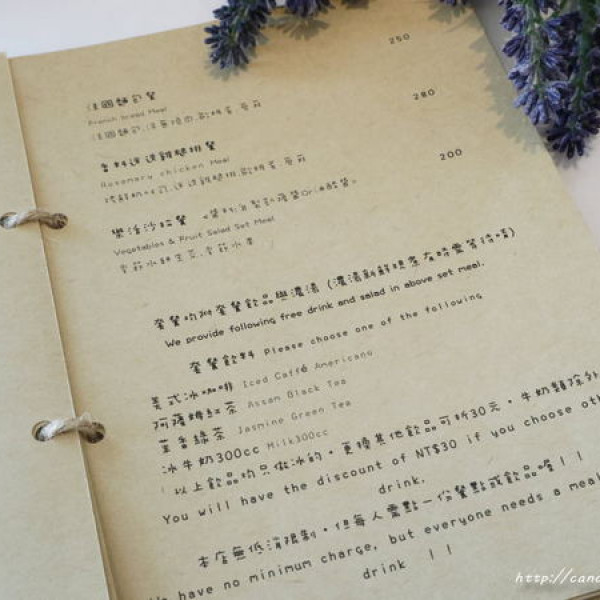 250
法國麵包餐
French bread Meal
280
香料迷迭雞腿排餐
Rosemary chicken Meal
200
樂活沙拉餐
Vegetables & Fruit Salad Set Meal
套餐均附套餐飲品與濃湯
We provide following free drink and salad in above set meal.
套餐飲料 Please choose one of the following
美式冰咖啡 Iced Caffé Americano
阿薩姆紅茶 Assam Black Tea
茉香綠茶 Jasmine Green Tea
冰牛奶300cc Milk300cc
以上飲品均只做冰的，更換其他飲品可折30元，牛奶類除外
You will have the discount of NT$30 if you choose oth
drink.
本店無低消限制，但每人需點一份餐點或飲品喔！！
We have no minimum charge, but everyone needs a meal
drink ！！
http://cand